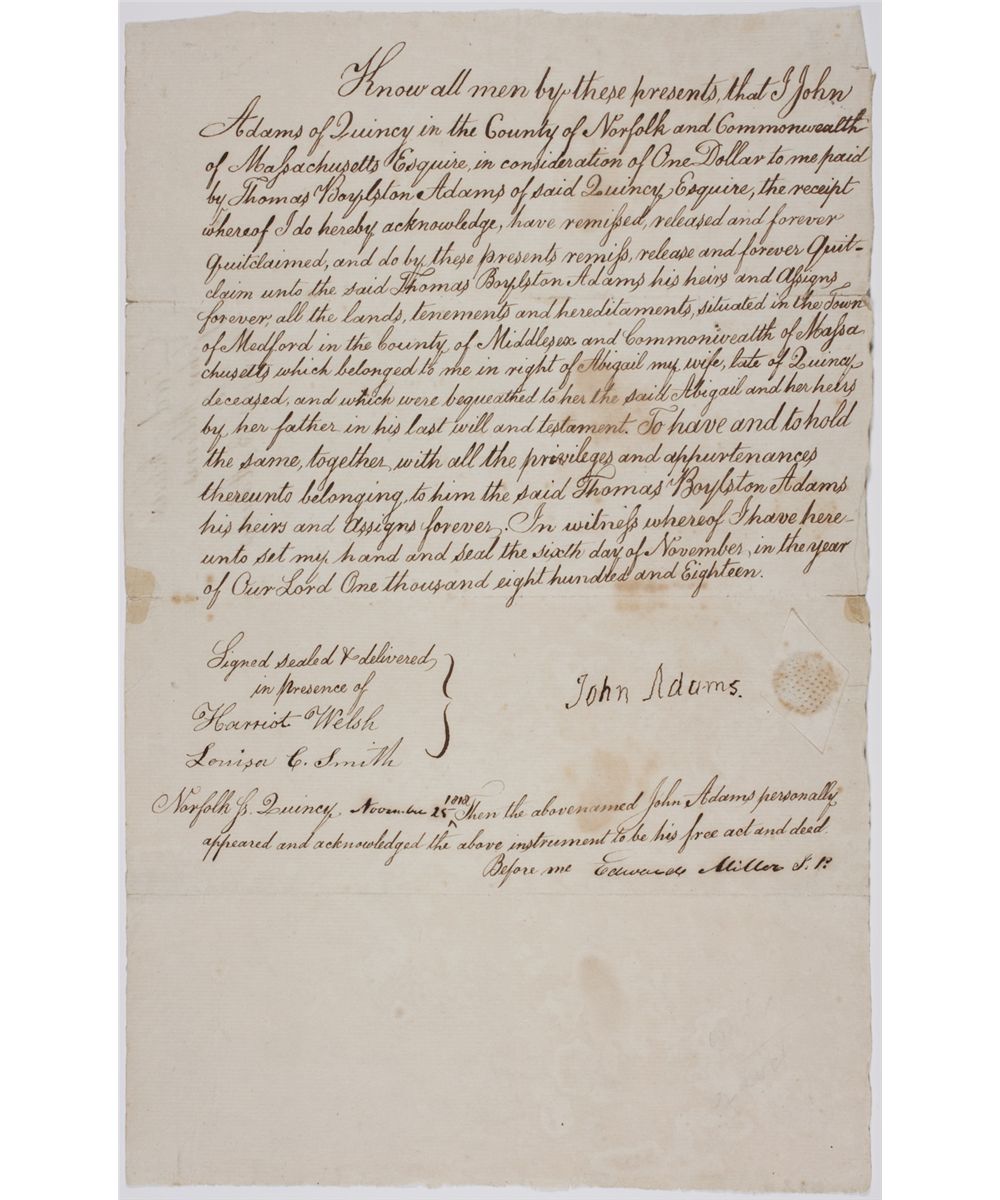 Know all men by these presents, that I John
Adams of Quincy in the County of Norfolk and Commonwealth
of Maſsachusetts Esquire, in consideration of One Dollar to me paid
by Thomas Boylston Adams of said Quincy Esquire, the receipt
whereof I do hereby acknowledge, have remiſsed, released and forever
Quitclaimed, and do by these presents remiſs, release and forever Quit-
claim unto the said Thomas Boylston Adams his heirs and Aſsigns
forever, all the lands, tenements and hereditaments, situated in the Town
of Medford in the County of Middlesex and Commonwealth of Maſsa
chusetts which belonged to me in right of Abigail my wife, late of Quincy
deceased, and which were bequeathed to her the said Abigail and her heirs
by her father in his last will and testament. To have and to hold
the same, together with all the privileges and appurtenances
thereunto belonging, to him the said Thomas Boylston Adams
his heirs and Aſsigns forever. In witneſs whereof I have here-
unto set my hand and seal the sixth day of November, in the year
of Our Lord One thousand eight hundred and Eighteen.
Signed sealed & delivered
in presence of
Harriot Welsh
Louisa C. Smith
John Adams.
Norfolk ſs. Quincy November 25 1818 Then the abovenamed John Adams personally
appeared and acknowledged the above instrument to be his free act and deed.
Before me Edward Miller J. P.